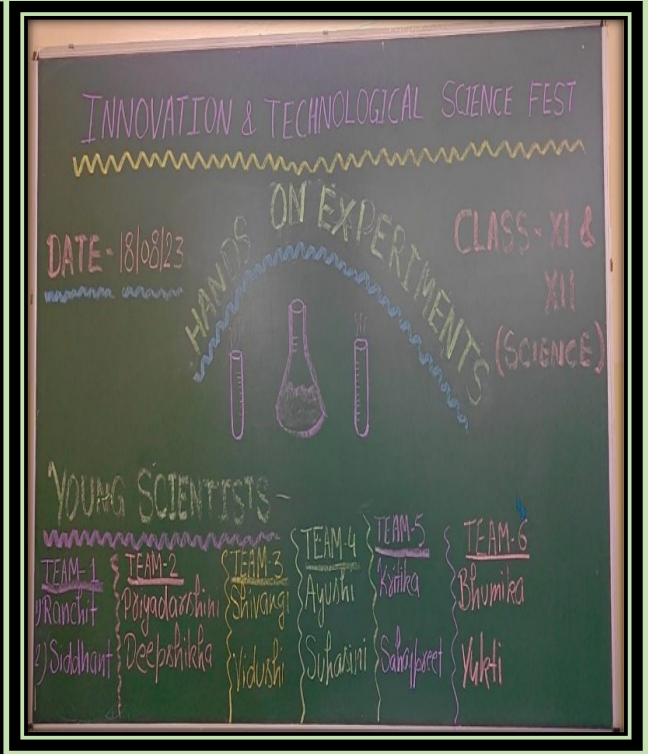 INNOVATION & TECHNOLOGICAL SCIENCE FEST
DATE - 18/08/23
HANDS ON EXPERIMENTS
CLASS - XI &
XII
(SCIENCE)
YOUNG SCIENTISTS -
TEAM-1
1) Ranchit
2) Siddhant
TEAM-2
Priyadarshini
Deepshikha
TEAM-3
Shivangi
Vidushi
TEAM-4
Ayushi
Suhasini
TEAM-5
Kritika
TEAM-6
Bhumika
Yukti